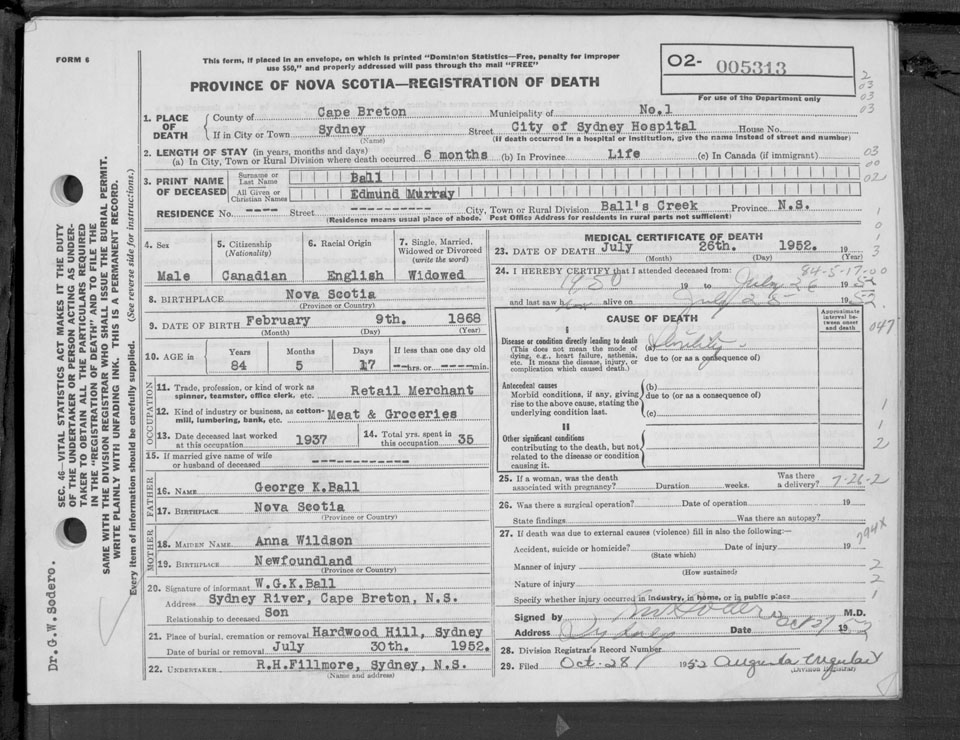 FORM 6
This form, if placed in an envelope, on which is printed "Dominion Statistics—Free, penalty for improper
use $50," and properly addressed will pass through the mail "FREE"
PROVINCE OF NOVA SCOTIA—REGISTRATION OF DEATH
02- 005313
For use of the Department only
SEC. 46—VITAL STATISTICS ACT MAKES IT THE DUTY
OF THE UNDERTAKER OR PERSON ACTING AS UNDER-
TAKER TO OBTAIN ALL THE PARTICULARS REQUIRED
IN THE "REGISTRATION OF DEATH" AND TO FILE THE
SAME WITH THE DIVISION REGISTRAR WHO SHALL ISSUE THE BURIAL PERMIT.
WRITE PLAINLY WITH UNFADING INK. THIS IS A PERMANENT RECORD.
Every item of information should be carefully supplied. (See reverse side for instructions.)
Dr. G.W. Sodero.
1. PLACE OF DEATH
County of Cape Breton Municipality of No.1
If in City or Town Sydney Street City of Sydney Hospital House No.
(Name) (If death occurred in a hospital or institution, give the name instead of street and number)
2. LENGTH OF STAY (in years, months and days)
(a) In City, Town or Rural Division where death occurred 6 months (b) In Province Life (c) In Canada (if immigrant)
3. PRINT NAME OF DECEASED
Surname or Last Name Ball
All Given or Christian Names Edmund Murray
RESIDENCE No. ---- Street ---------- City, Town or Rural Division Ball's Creek Province N.S.
(Residence means usual place of abode. Post Office Address for residents in rural parts not sufficient)
4. Sex Male
5. Citizenship (Nationality) Canadian
6. Racial Origin English
7. Single, Married, Widowed or Divorced (write the word) Widowed
8. BIRTHPLACE Nova Scotia
(Province or Country)
9. DATE OF BIRTH February 9th. 1868
(Month) (Day) (Year)
10. AGE in Years Months Days If less than one day old
84 5 17 --hrs. or ---min.
OCCUPATION
11. Trade, profession, or kind of work as
spinner, teamster, office clerk, etc. Retail Merchant
12. Kind of industry or business, as cotton-
mill, lumbering, bank, etc. Meat & Groceries
13. Date deceased last worked
at this occupation 1937
14. Total yrs. spent in
this occupation 35
15. If married give name of wife
or husband of deceased ------------
FATHER
16. NAME George K.Ball
17. BIRTHPLACE Nova Scotia
(Province or Country)
MOTHER
18. MAIDEN NAME Anna Wildson
19. BIRTHPLACE Newfoundland
(Province or Country)
20. Signature of informant W.G.K.Ball
Address Sydney River, Cape Breton, N.S.
Relationship to deceased Son
21. Place of burial, cremation or removal Hardwood Hill, Sydney
Date of burial or removal July 30th. 1952.
22. UNDERTAKER R.H.Fillmore, Sydney, N.S.
(Name and address)
MEDICAL CERTIFICATE OF DEATH
23. DATE OF DEATH July 26th. 1952. 19
(Month) (Day) (Year)
84-5-17-00
24. I HEREBY CERTIFY that I attended deceased from:
1950 19 to July 26 1952
and last saw him alive on July 25 1952
CAUSE OF DEATH
Approximate interval between onset and death
I
Disease or condition directly leading to death (a)
(This does not mean the mode of
dying, e.g., heart failure, asthenia,
etc. It means the disease, injury, or
complication which caused death.)
due to (or as a consequence of)
Antecedent causes
Morbid conditions, if any, giving
rise to the above cause, stating the
underlying condition last.
(b)
due to (or as a consequence of)
(c)
II
Other significant conditions
contributing to the death, but not
related to the disease or condition
causing it.
25. If a woman, was the death
associated with pregnancy? Duration weeks. Was there
a delivery? 7-26-2
26. Was there a surgical operation? Date of operation 19
State findings Was there an autopsy?
27. If death was due to external causes (violence) fill in also the following:—
Accident, suicide or homicide? Date of injury 19
(State which)
Manner of injury
(How sustained)
Nature of injury
Specify whether injury occurred in industry, in home, or in public place
794x
Signed by M.D.
Address Sydney Date Oct 27 1952
28. Division Registrar's Record Number
29. Filed Oct-28 1952
(Division Registrar)
2
03
03
03
03
00
02
1
0
1
3
047
1
1
2
2
2
1